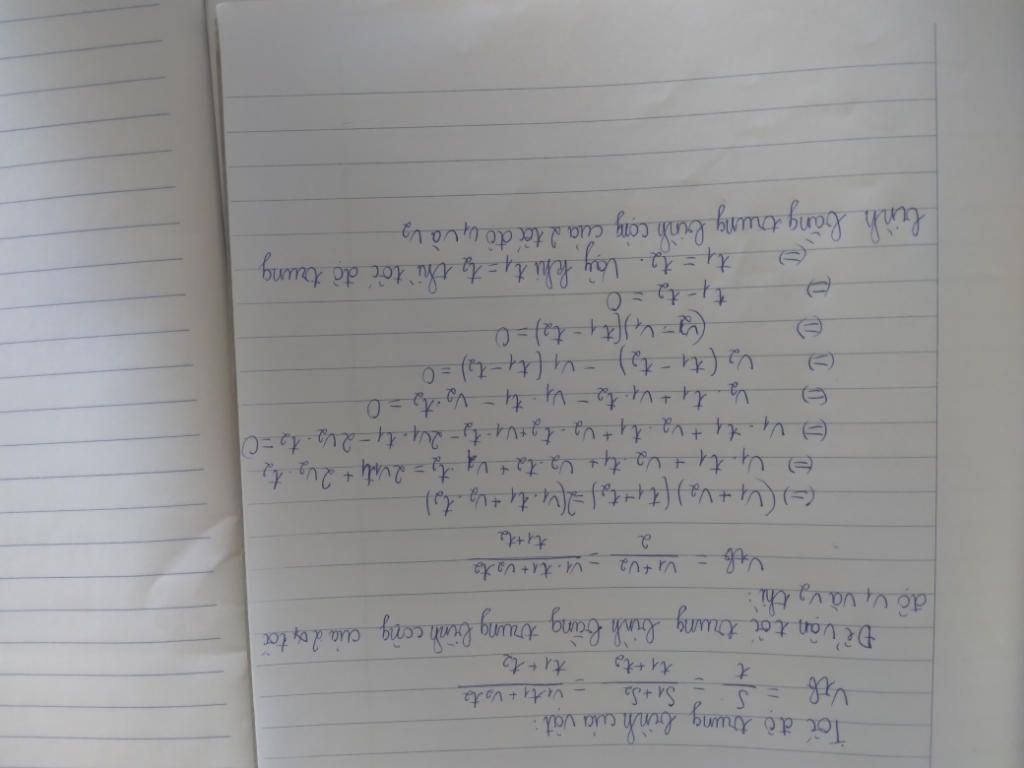 Tốc độ trung bình của vật:
Vtb = S/t = (S1+S2)/(t1+t2) = (v1t1+v2t2)/(t1+t2)
Để vận tốc trung bình bằng trung bình cộng của 2 tốc
độ v1 và v2 thì:
Vtb = (v1+v2)/2 = (v1.t1+v2t2)/(t1+t2)
(=) (v1+v2)(t1+t2)=2(v1.t1+v2.t2)
(=) v1.t1+v2.t1+v2.t2+v1.t2=2v1t1+2v2.t2
(=) v1.t1+v2.t1+v2.t2+v1.t2-2v1.t1-2v2.t2=0
(=) v2.t1+v1.t2-v1.t1-v2.t2=0
(=) v2(t1-t2) - v1(t1-t2)=0
(=) (v2-v1)(t1-t2)=0
(=) t1-t2=0
(=) t1=t2. Vậy khi t1=t2 thì tốc độ trung
bình bằng trung bình cộng của 2 tốc độ v1 và v2